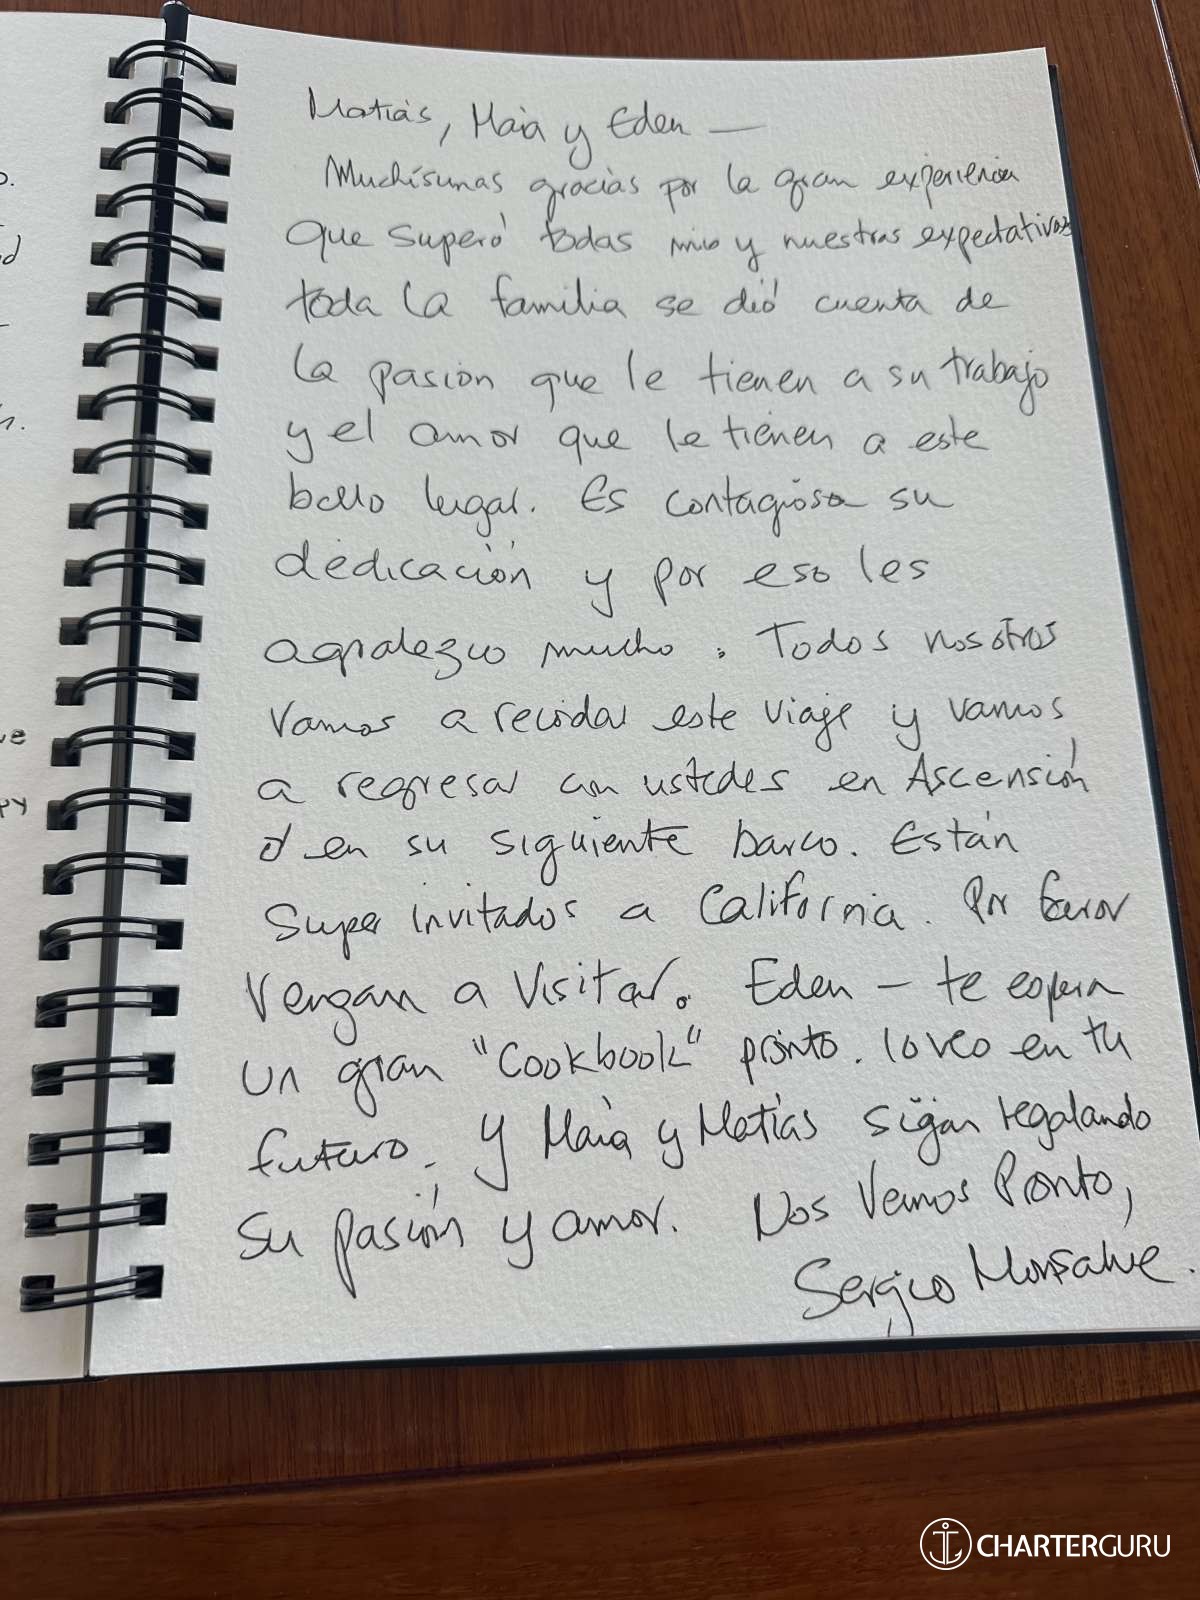 Matías, Maia y Eden —
Muchísimas gracias por la gran experiencia
que superó todas mis y nuestras expectativas
toda la familia se dió cuenta de
la pasión que le tienen a su trabajo
y el amor que le tienen a este
bello lugar. Es contagiosa su
dedicación y por eso les
agradezco mucho. Todos nosotros
vamos a recordar este viaje y vamos
a regresar con ustedes en Ascensión
o en su siguiente barco. Están
super invitados a California. Por favor
vengan a visitar. Eden — te espera
un gran "Cookbook" pronto. lo veo en tu
futuro. Y Maia y Matías sigan regalando
su pasión y amor. Nos vemos Pronto,
Sergio Monsalve.
CHARTERGURU